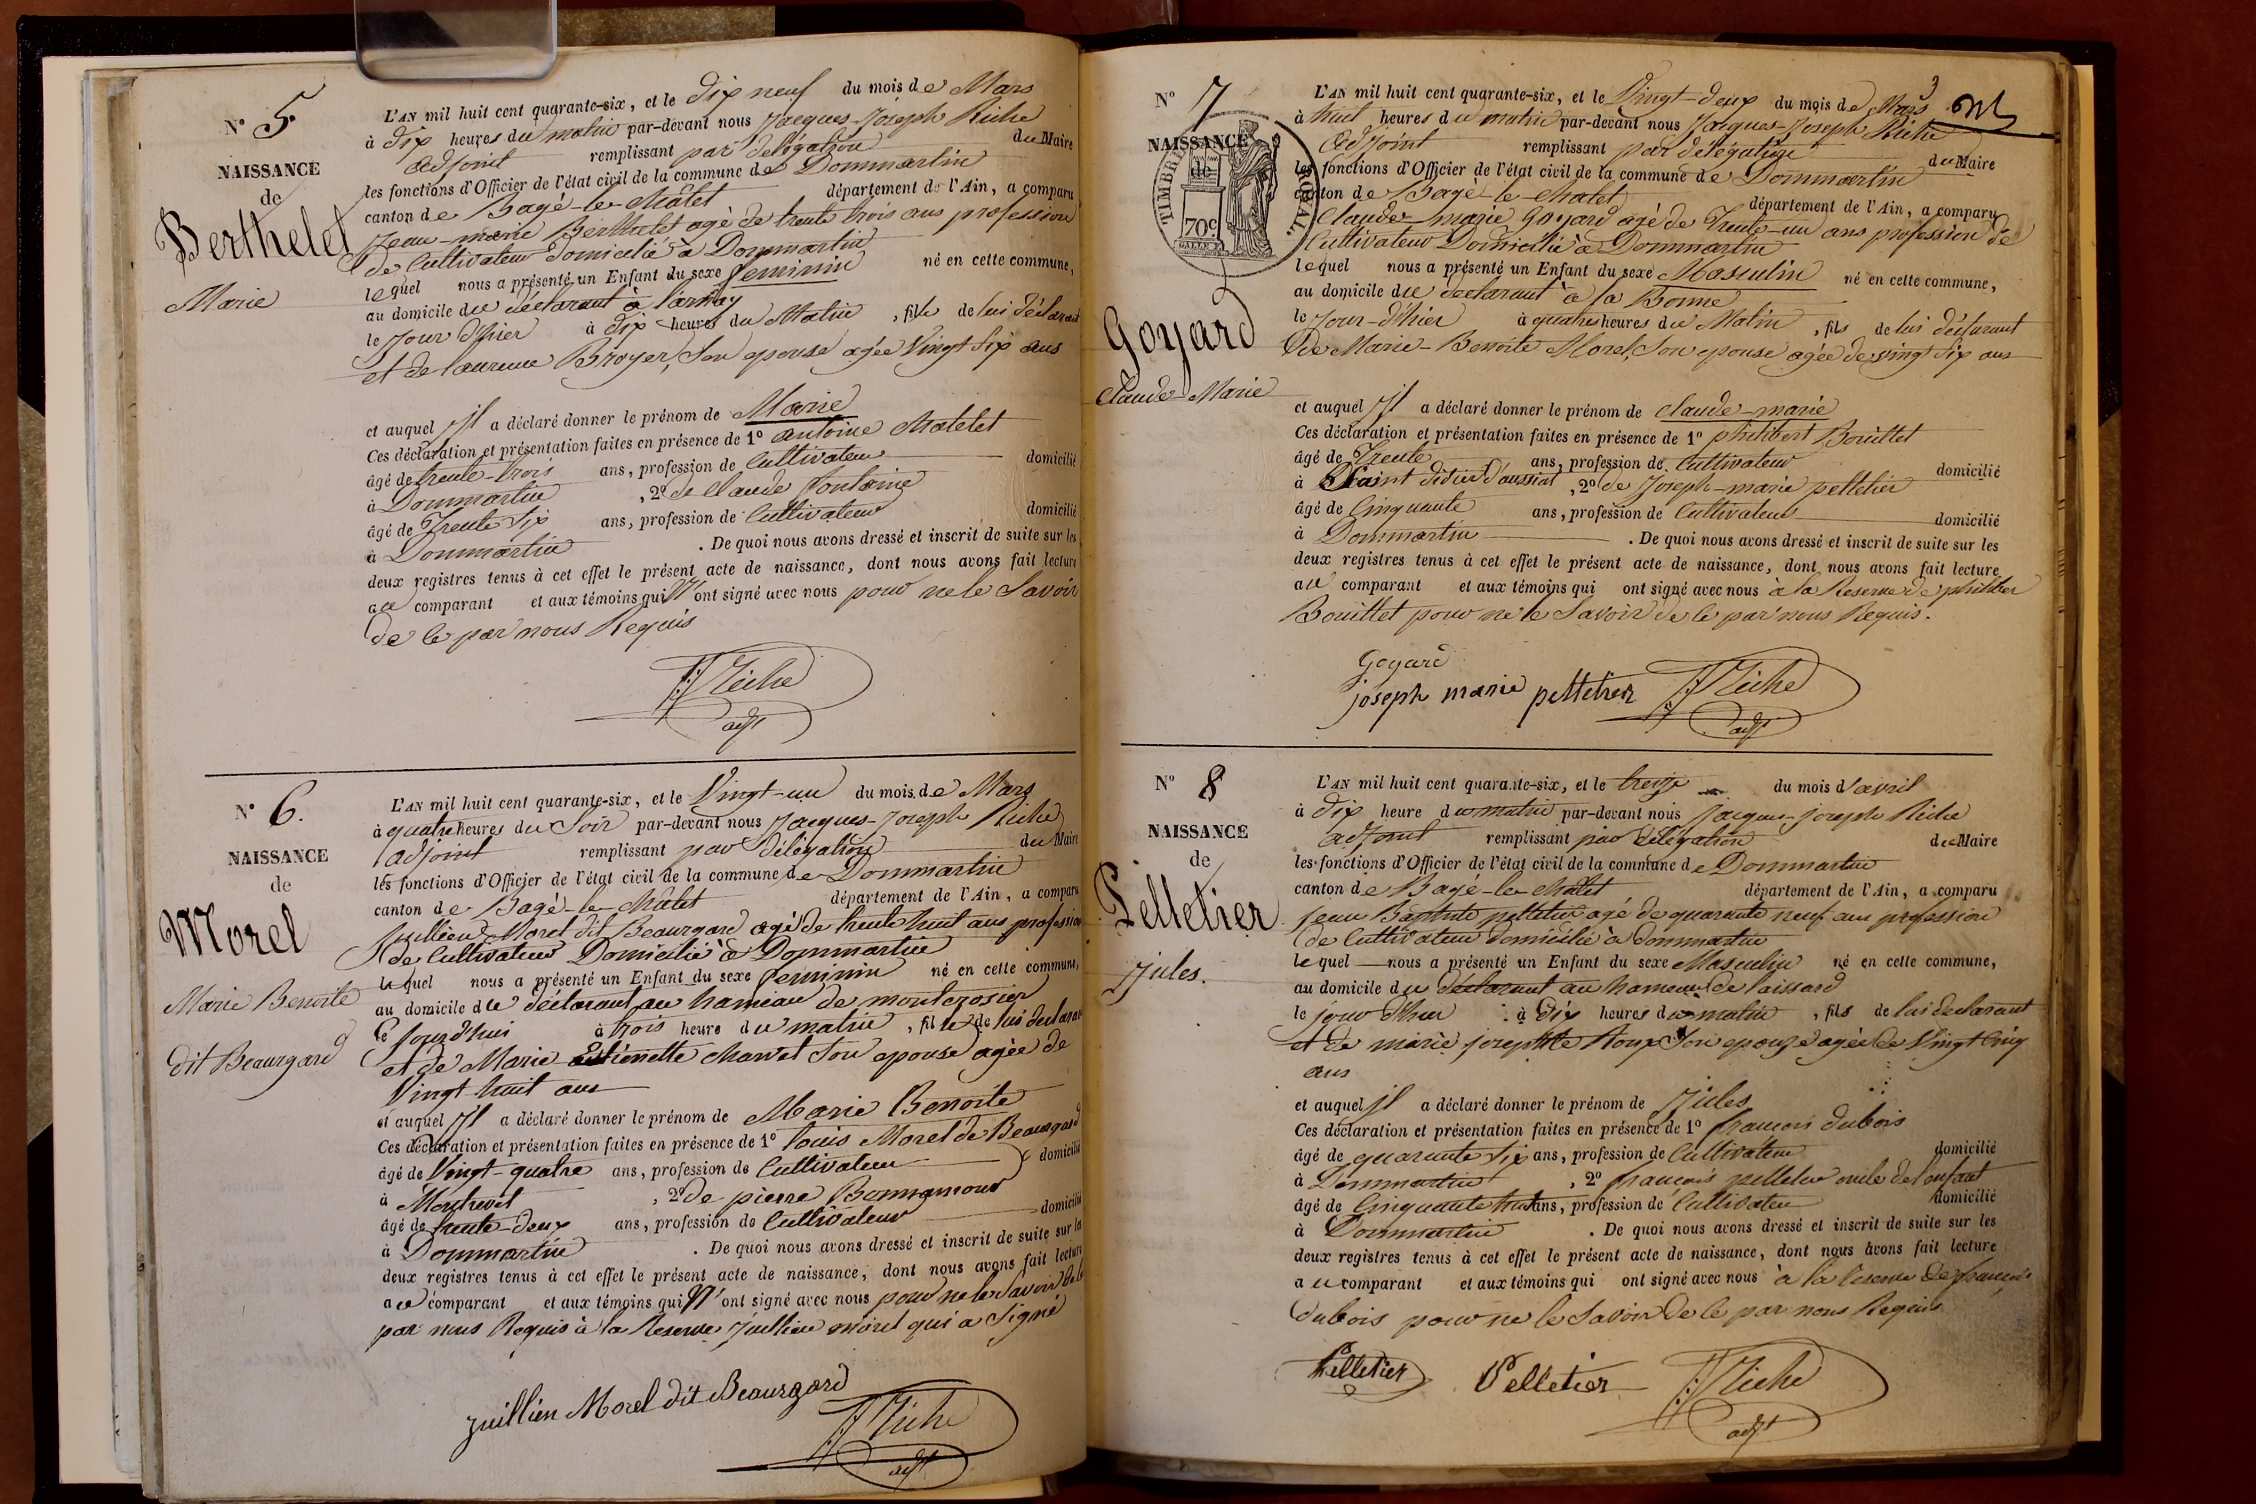 N° 5.
NAISSANCE
de
Berthelet
Marie
L'AN mil huit cent quarante-six, et le dix neuf du mois de Mars
à dix heures du matin par-devant nous Jacques-Joseph Riche
adjoint remplissant par délégation du Maire
les fonctions d'Officier de l'état civil de la commune de Dommartin
canton de Bagé-le-Châtel département de l'Ain, a comparu
Jean-marie Berthelet agé de trente trois ans profession
de Cultivateur domicilié à Dommartin
lequel nous a présenté un Enfant du sexe feminin né en cette commune,
au domicile du déclarant à
le jour d'hier à dix heures du Matin, fille de lui déclarant
et de laurence Broyer, son epouse agée Vingt six ans
et auquel Jl a déclaré donner le prénom de Marie
Ces déclaration et présentation faites en présence de 1° antoine Matelet
âgé de trente-trois ans, profession de Cultivateur domicilié
à Dommartin, 2° de Claude fontaine
âgé de Trente six ans, profession de Cultivateur domicilié
à Dommartin. De quoi nous avons dressé et inscrit de suite sur les
deux registres tenus à cet effet le présent acte de naissance, dont nous avons fait lecture
au comparant et aux témoins qui N'ont signé avec nous pour ne le Savoir
de ce par nous Requis
JJ Riche
adjt
N° 6.
NAISSANCE
de
Morel
Marie Benoite
dit Beauregard
L'AN mil huit cent quarante-six, et le Vingt-un du mois de Mars
à quatre heures du Soir par-devant nous Jacques-Joseph Riche
adjoint remplissant par délégation du Maire
les fonctions d'Officier de l'état civil de la commune de Dommartin
canton de Bagé-le-Châtel département de l'Ain, a comparu
Jullien Morel dit Beauregard agé de trente huit ans profession
de Cultivateur Domicilié à Dommartin
lequel nous a présenté un Enfant du sexe feminin né en cette commune,
au domicile du déclarant au hameau de montcrosier
le jourd'hui à trois heure du matin, fille de lui declarant
et de Marie Estienette Charvet Son epouse agée de
Vingt huit ans
et auquel Jl a déclaré donner le prénom de Marie Benoite
Ces déclaration et présentation faites en présence de 1° louis Morel de Beauregard
âgé de Vingt-quatre ans, profession de Cultivateur domicilié
à Montrevel, 2° de pierre Bonnamour
âgé de trente-deux ans, profession de Cultivateur domicilié
à Dommartin. De quoi nous avons dressé et inscrit de suite sur les
deux registres tenus à cet effet le présent acte de naissance, dont nous avons fait lecture
au comparant et aux témoins qui N'ont signé avec nous pour ne le Savoir de ce
par nous Requis à la Reserve Juillien morel qui a Signé
juillien Morel dit Beauregard
JJ Riche
adjt
3
N° 7
NAISSANCE
de
TIMBRE ROYAL.
70c
Goyard
Claude-Marie
L'AN mil huit cent quarante-six, et le Vingt-deux du mois de Mars
à huit heures du matin par-devant nous Jacques-Joseph Riche
adjoint remplissant par délégation du Maire
les fonctions d'Officier de l'état civil de la commune de Dommartin
canton de Bagé-le-Chatel département de l'Ain, a comparu
Claude-marie Goyard agé de Trente-un ans profession de
Cultivateur Domicilié à Dommartin
lequel nous a présenté un Enfant du sexe Masculin né en cette commune,
au domicile du declarant à la Bonne
le Jour-d'hier à quatre heures du Matin, fils de lui déclarant
de Marie-Benoite Morel, Son epouse agée de vingt six ans
et auquel Jl a déclaré donner le prénom de Claude-marie
Ces déclaration et présentation faites en présence de 1° philibert Bouillet
âgé de Trente ans, profession de Cultivateur domicilié
à Saint didier d'aussiat, 2° de Joseph-marie pelletier
âgé de Cinquante ans, profession de Cultivateur domicilié
à Dommartin. De quoi nous avons dressé et inscrit de suite sur les
deux registres tenus à cet effet le présent acte de naissance, dont nous avons fait lecture
au comparant et aux témoins qui ont signé avec nous à la Reserve de philiber
Bouillet pour ne le Savoir de ce par nous Requis.
Goyard
joseph marie pelletier JJ Riche
adjt
N° 8
NAISSANCE
de
Pelletier
Jules.
L'AN mil huit cent quarante-six, et le treize du mois d'avril
à dix heure du matin par-devant nous Jacques-joseph Riche
adjoint remplissant par délégation du Maire
les fonctions d'Officier de l'état civil de la commune de Dommartin
canton de Bagé-le-Châtel département de l'Ain, a comparu
jean Baptiste pelletier agé de quarante neuf ans profession
de Cultivateur domicilié à dommartin
lequel nous a présenté un Enfant du sexe Masculin né en cette commune,
au domicile du declarant au hameau de laissard
le jour d'hier à dix heures du matin, fils de lui declarant
et de marie josephte Son epouze agée de Vingt Cinq
ans
et auquel jl a déclaré donner le prénom de Jules
Ces déclaration et présentation faites en présence de 1° francois dubois
âgé de quarante six ans, profession de Cultivateur domicilié
à Dommartin, 2° francois pelletier oncle de l'enfant
âgé de Cinquante huit ans, profession de Cultivateur domicilié
à Dommartin. De quoi nous avons dressé et inscrit de suite sur les
deux registres tenus à cet effet le présent acte de naissance, dont nous avons fait lecture
au comparant et aux témoins qui ont signé avec nous à la reserve de francois
dubois pour ne le Savoir de ce par nous Requis
Pelletier Pelletier JJ Riche
adjt